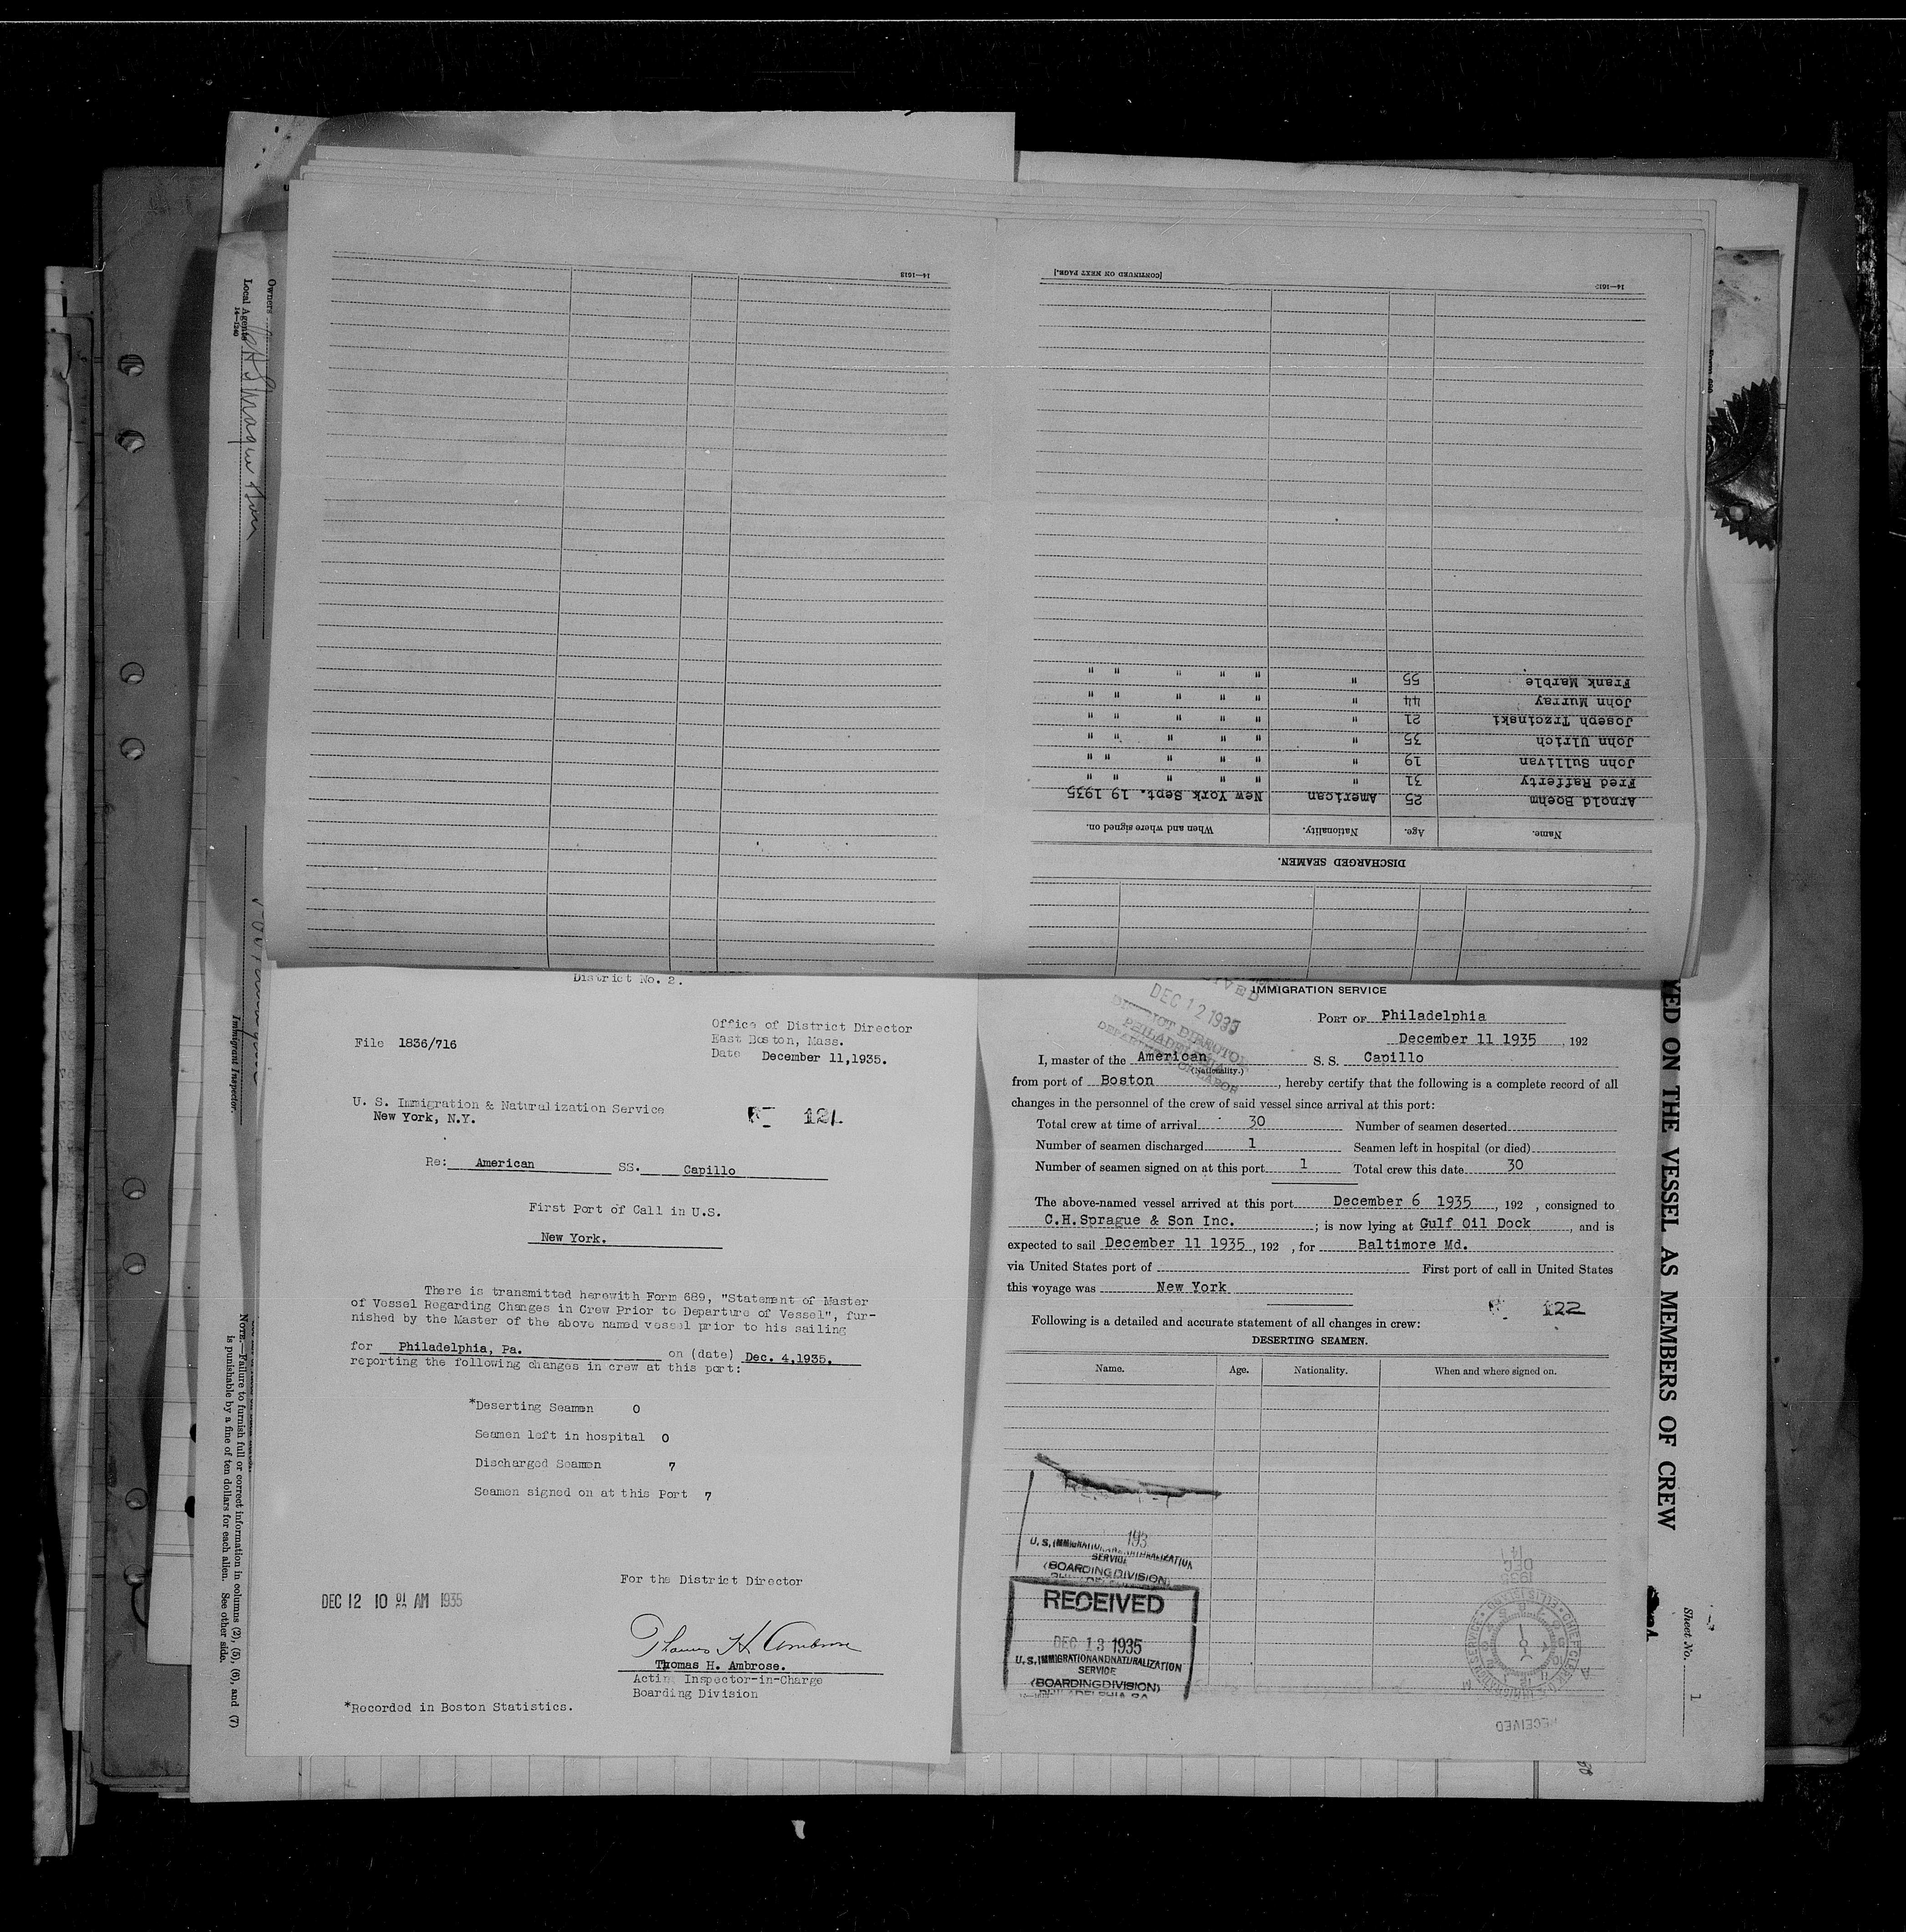 14—1613
[CONTINUED ON NEXT PAGE.]
14—1613
DISCHARGED SEAMEN.
Name. Age. Nationality. When and where signed on.
Arnold Boehm 25 American New York Sept. 19 1935
Fred Rafferty 31 " " " " " "
John Sullivan 19 " " " " " "
John Ulrich 35 " " " " " "
Joseph Trzoinski 21 " " " " " "
John Murray 44 " " " " " "
Frank Marble 55 " " " " " "
Owners
Local Agents
14—1240
Immigrant Inspector.
NOTE.—Failure to furnish full or correct information in columns (2), (5), (6), and (7)
is punishable by a fine of ten dollars for each alien. See other side.
District No. 2.
Office of District Director
East Boston, Mass.
Date December 11,1935.
File 1836/716
U. S. Immigration & Naturalization Service
New York, N.Y.
121
Re: American SS. Capillo
First Port of Call in U.S.
New York.
There is transmitted herewith Form 689, "Statement of Master
of Vessel Regarding Changes in Crew Prior to Departure of Vessel", fur-
nished by the Master of the above named vessel prior to his sailing
for Philadelphia, Pa. on (date) Dec. 4,1935.
reporting the following changes in crew at this port:
*Deserting Seamen 0
Seamen left in hospital 0
Discharged Seamen 7
Seamen signed on at this Port 7
For the District Director
DEC 12 10 01 AM 1935
Thomas H. Ambrose
Thomas H. Ambrose.
Acting Inspector-in-Charge
Boarding Division
*Recorded in Boston Statistics.
IMMIGRATION SERVICE
DEC 12 1935
DISTRICT DIRECTOR
PHILADELPHIA
DEPARTMENT OF LABOR
PORT OF Philadelphia
December 11 1935, 192
I, master of the American S. S. Capillo
(Nationality.)
from port of Boston, hereby certify that the following is a complete record of all
changes in the personnel of the crew of said vessel since arrival at this port:
Total crew at time of arrival 30 Number of seamen deserted
Number of seamen discharged 1 Seamen left in hospital (or died)
Number of seamen signed on at this port 1 Total crew this date 30
The above-named vessel arrived at this port December 6 1935, 192 , consigned to
C.H.Sprague & Son Inc. ; is now lying at Gulf Oil Dock, and is
expected to sail December 11 1935, 192 , for Baltimore Md.
via United States port of First port of call in United States
this voyage was New York
122
Following is a detailed and accurate statement of all changes in crew:
DESERTING SEAMEN.
Name. Age. Nationality. When and where signed on.
193
U. S. IMMIGRATION AND NATURALIZATION
SERVICE
(BOARDING DIVISION)
RECEIVED
DEC 13 1935
U. S. IMMIGRATION AND NATURALIZATION
SERVICE
(BOARDING DIVISION)
PHILADELPHIA PA
1935
DEC
RECEIVED
YED ON THE VESSEL AS MEMBERS OF CREW
Sheet No. 1